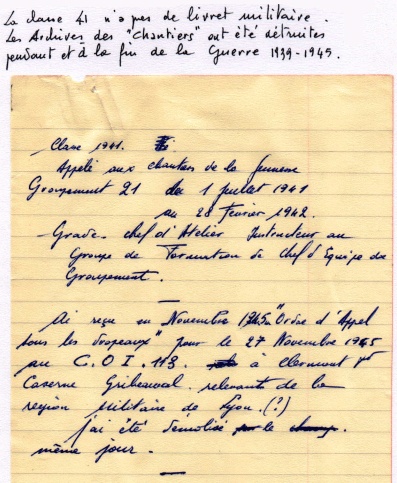 La classe 41 n'a pas de livret militaire.
Les Archives des "Chantiers" ont été détruites
pendant et à la fin de la Guerre 1939-1945.
Classe 1941.
Appelé aux chantiers de la Jeunesse
Groupement 21 du 1 juillet 1941
au 28 Février 1942.
- Grade - chef d'Atelier Instructeur au
Groupe de Formation de Chef d'Equipe du
Groupement.
Ai reçu en Novembre 1945 "Ordre d'Appel
sous les drapeaux" pour le 27 Novembre 1945
au C.O.I. 113. à Clermont Fd
Caserne Gribeauval. relevante de la
région Militaire de Lyon. (?)
j'ai été démobilisé le
même jour.